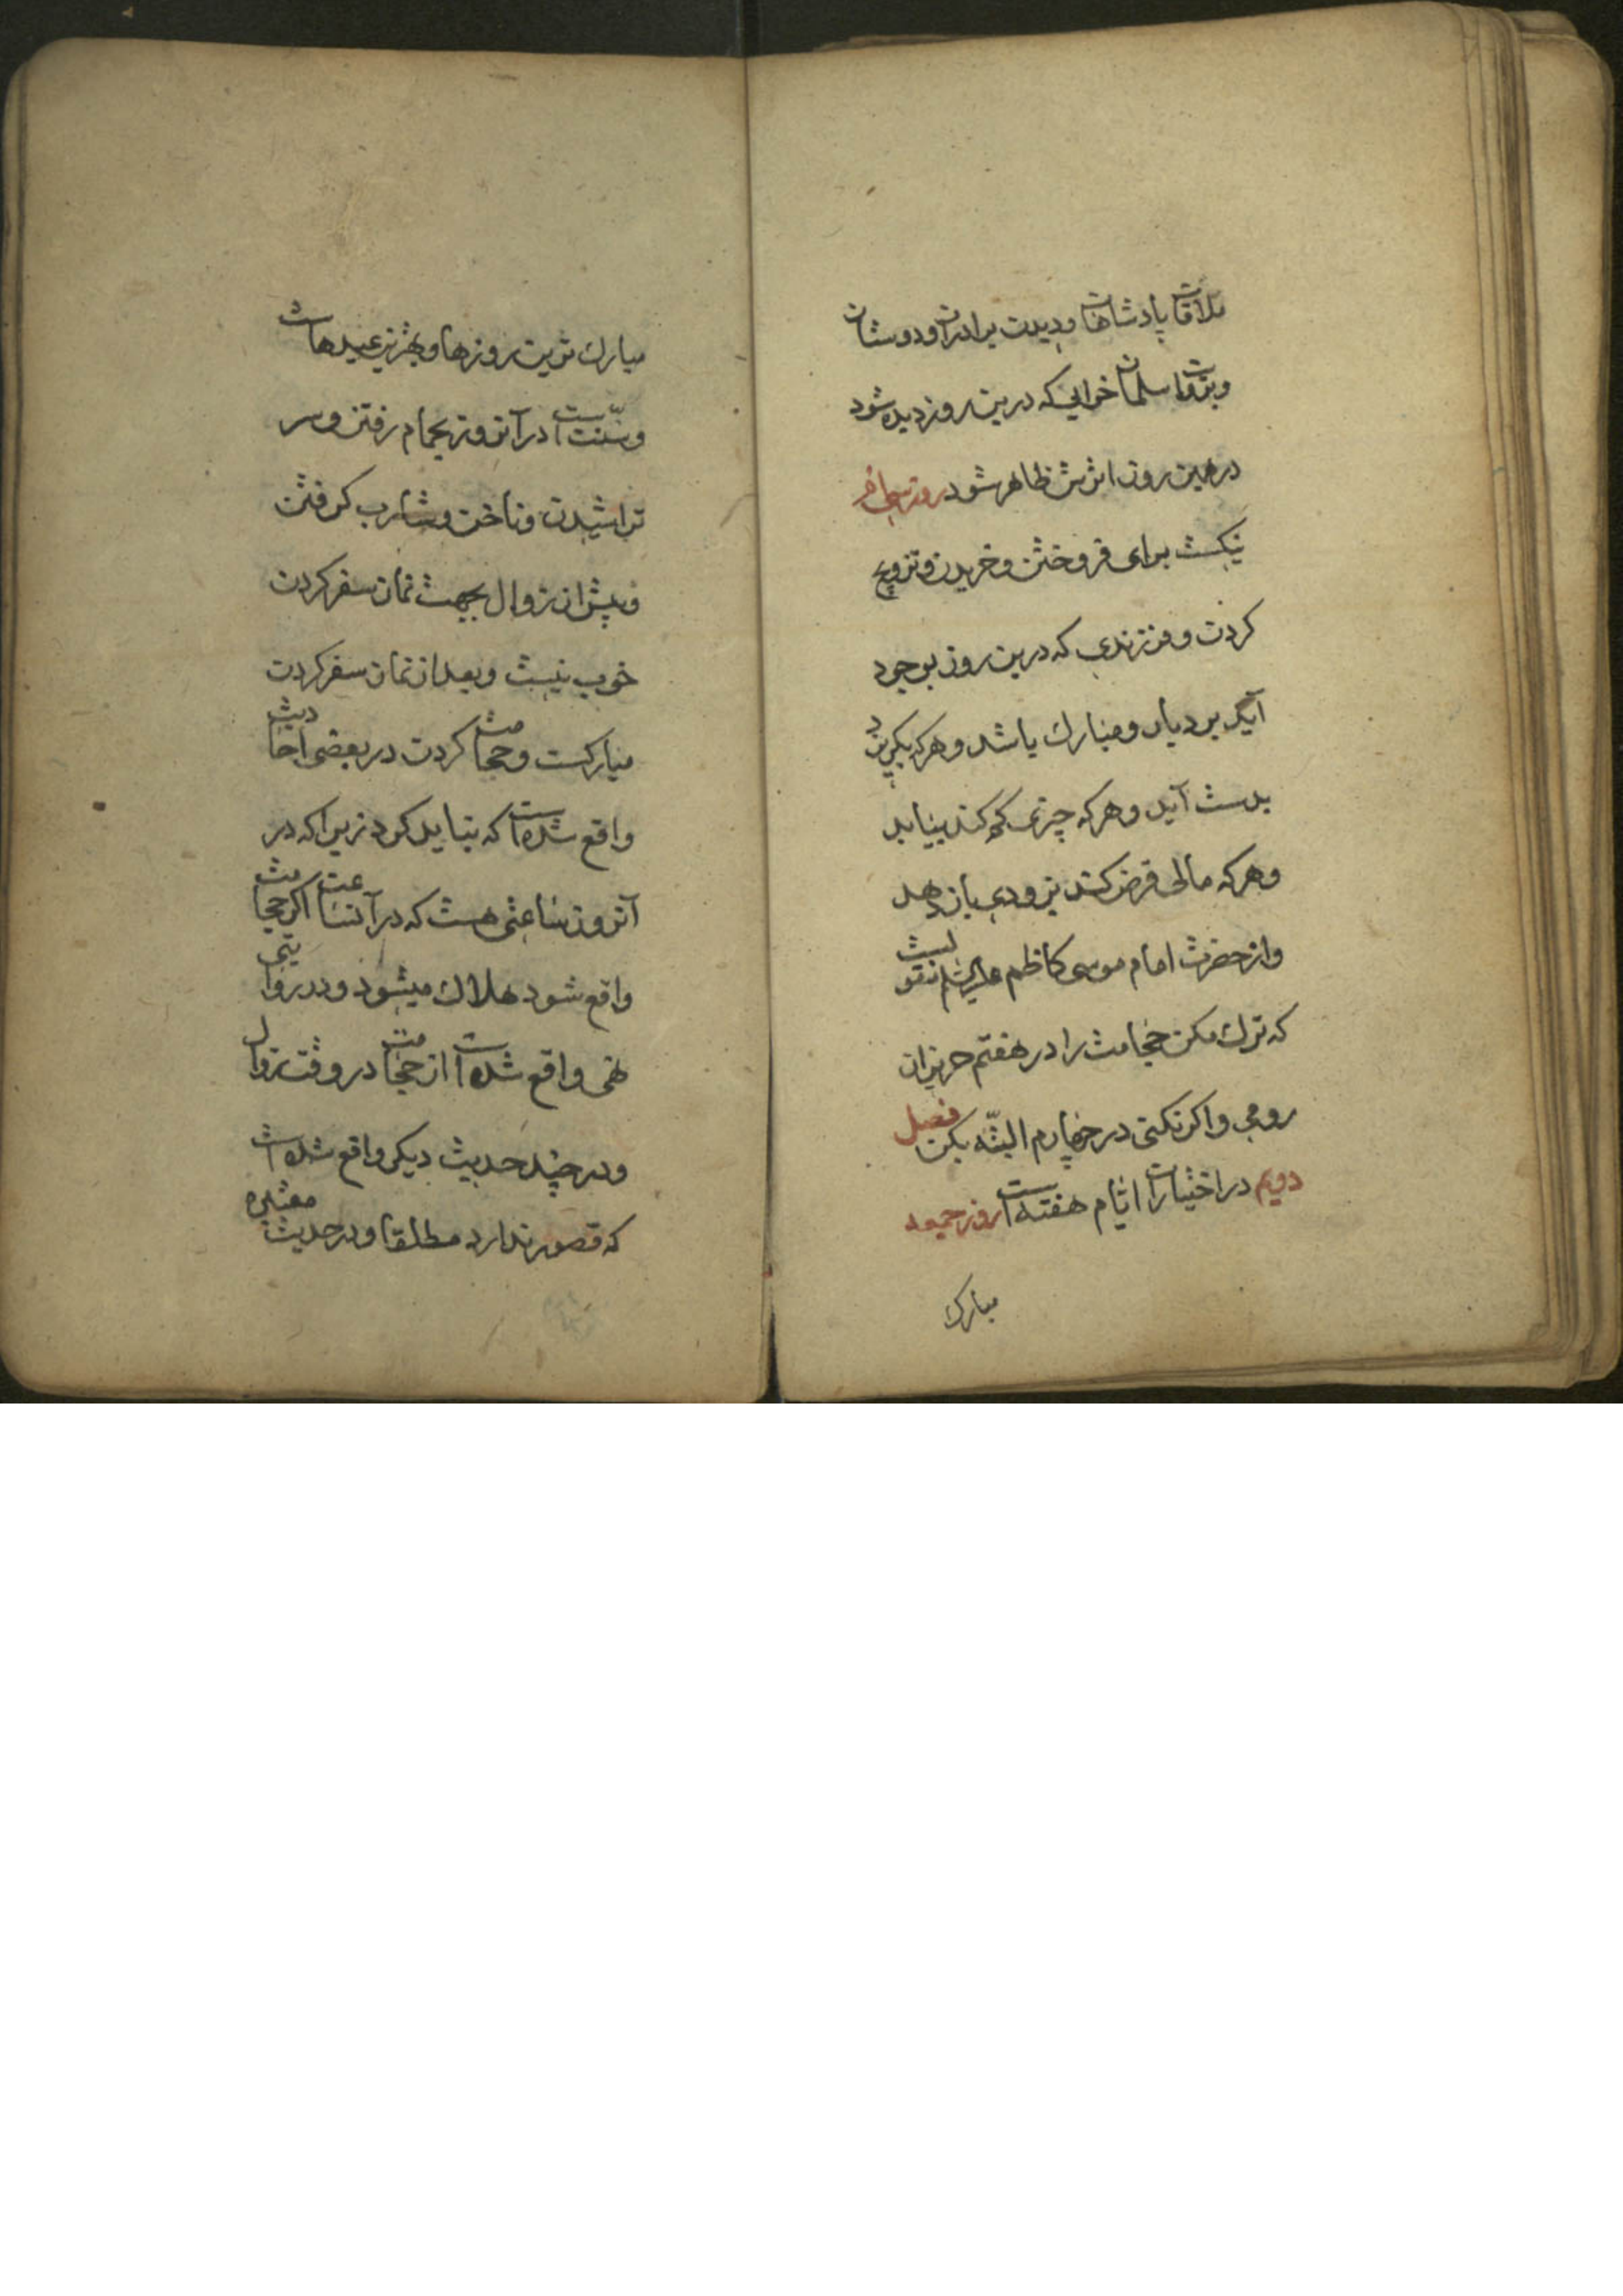 ملاقات پادشاهان و دیدن برادران و دوستان
و بروایت سلمان خوابی که درین روز دیده شود
در همین روز اثرش ظاهر شود روز سی‌ام
نیکست برای فروختن و خریدن و تزویج
کردن و فرزندی که درین روز بوجود
آید بردبار و مبارک باشد و هر که بگریزد
بدست آید و هر که چیزی گم کند بیابد
و هر که مالی قرض کند بزودی باز دهد
و از حضرت امام موسی کاظم علیه السلام منقولست
که ترک مکن حجامت را در هفتم حزیران
رومی و اگر نکنی در چهاردهم البته بکن فصل
دویم در اختیارات ایام هفته است روز جمعه
مبارک
مبارک ترین روزها و بهترین عیدهاست
و سنّت است در آنروز بحمام رفتن و سر
تراشیدن و ناخن و شارب گرفتن
و پیش از زوال بجهت نماز سفر کردن
خوب نیست و بعد از نماز سفر کردن
مبارکست و حجامت کردن در بعضی احادیث
واقع شده است که نباید کرد زیرا که در
آنروز ساعتی هست که در آنساعت اگر حجامت
واقع شود هلاک میشود و در روایتی
نهی واقع شده است از حجامت در وقت زوال
و در چند حدیث دیگر واقع شده است
که قصور ندارد مطلقا و در حدیث معتبره